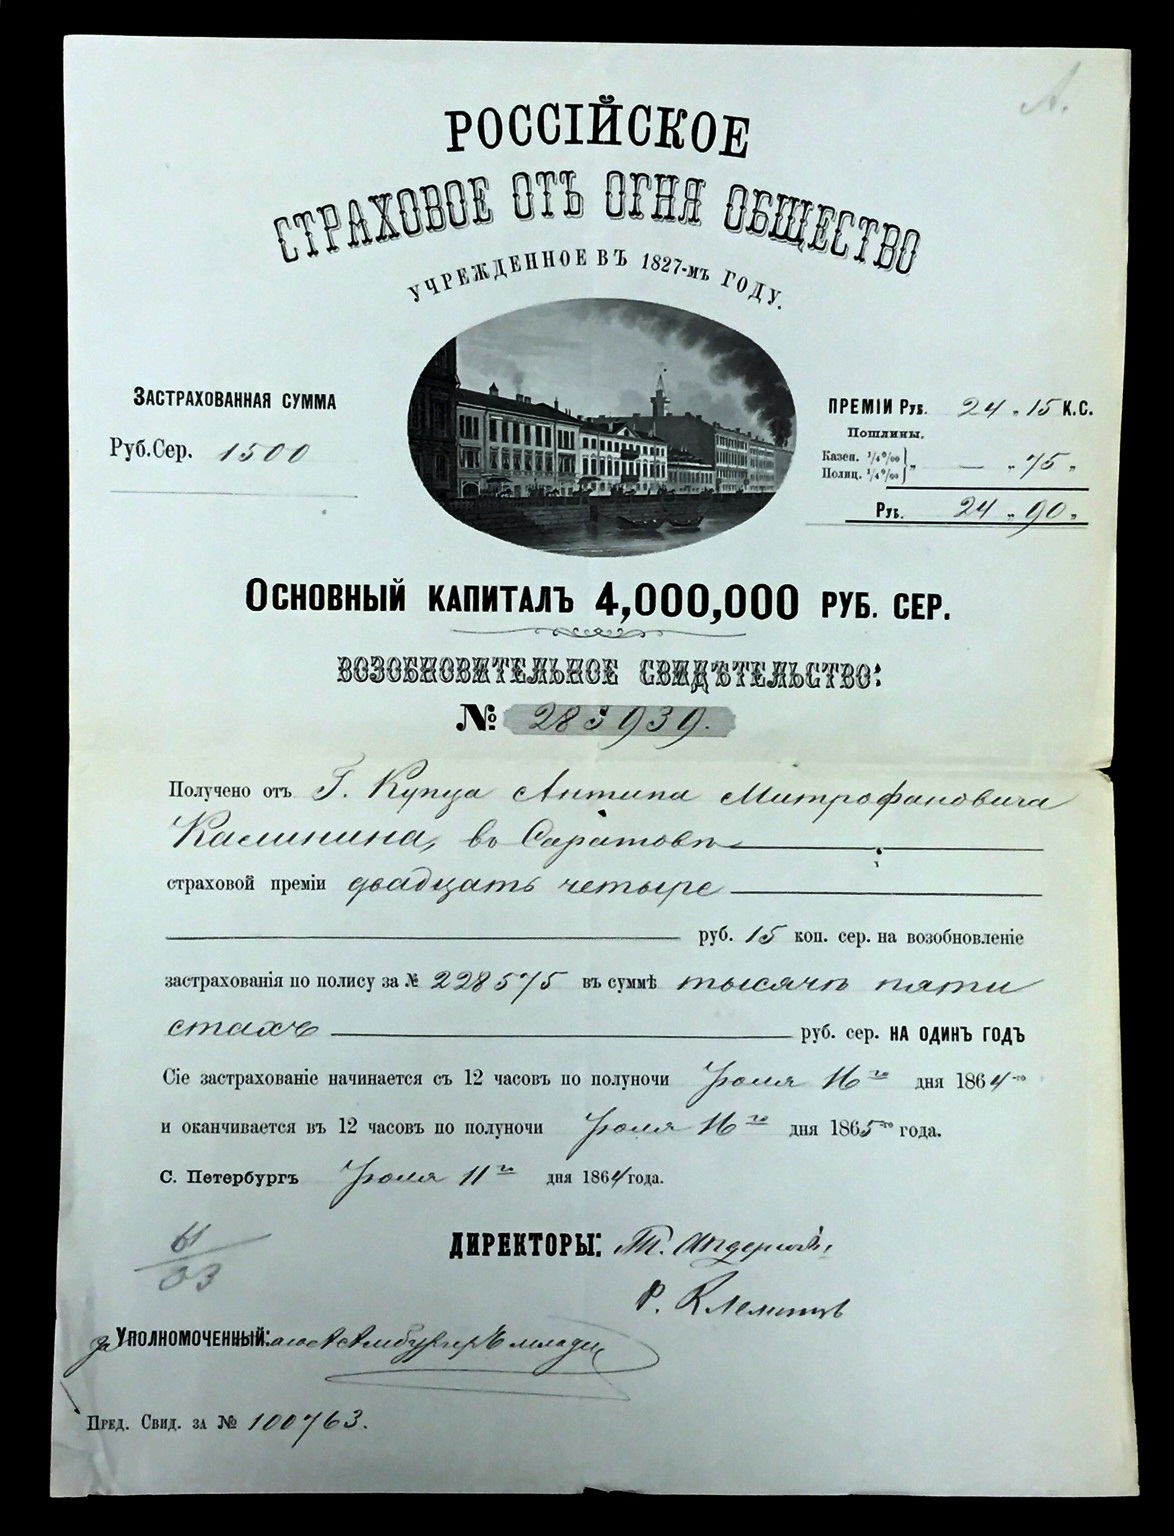 А.
РОССІЙСКОЕ
СТРАХОВОЕ ОТЪ ОГНЯ ОБЩЕСТВО
УЧРЕЖДЕННОЕ ВЪ 1827-мъ ГОДУ.
ЗАСТРАХОВАННАЯ СУММА
Руб.Сер. 1500
ПРЕМІИ Руб. 24 „ 15 К.С.
Пошлины.
Казен. 1/4 0/00
Полиц. 1/4 0/00 } „ — „ 75 „
Руб. 24 „ 90 „
ОСНОВНЫЙ КАПИТАЛЪ 4,000,000 РУБ. СЕР.
ВОЗОБНОВИТЕЛЬНОЕ СВИДѢТЕЛЬСТВО:
№ 283939.
Получено отъ Г. Купца Антипа Митрофановича
Калинина, въ Саратовѣ
страховой преміи двадцать четыре
руб. 15 коп. сер. на возобновленіе
застрахованія по полису за № 228575 въ суммѣ тысячѣ пяти
стахъ руб. сер. НА ОДИНЪ ГОДЪ
Сіе застрахованіе начинается съ 12 часовъ по полуночи Іюля 16го дня 1864-го
и оканчивается въ 12 часовъ по полуночи Іюля 16го дня 1865го года.
С. Петербургъ Іюля 11го дня 1864 года.
61
03
ДИРЕКТОРЫ:
Р. Клеменцъ
за УПОЛНОМОЧЕННЫЙ:
Пред. Свид. за № 100763.